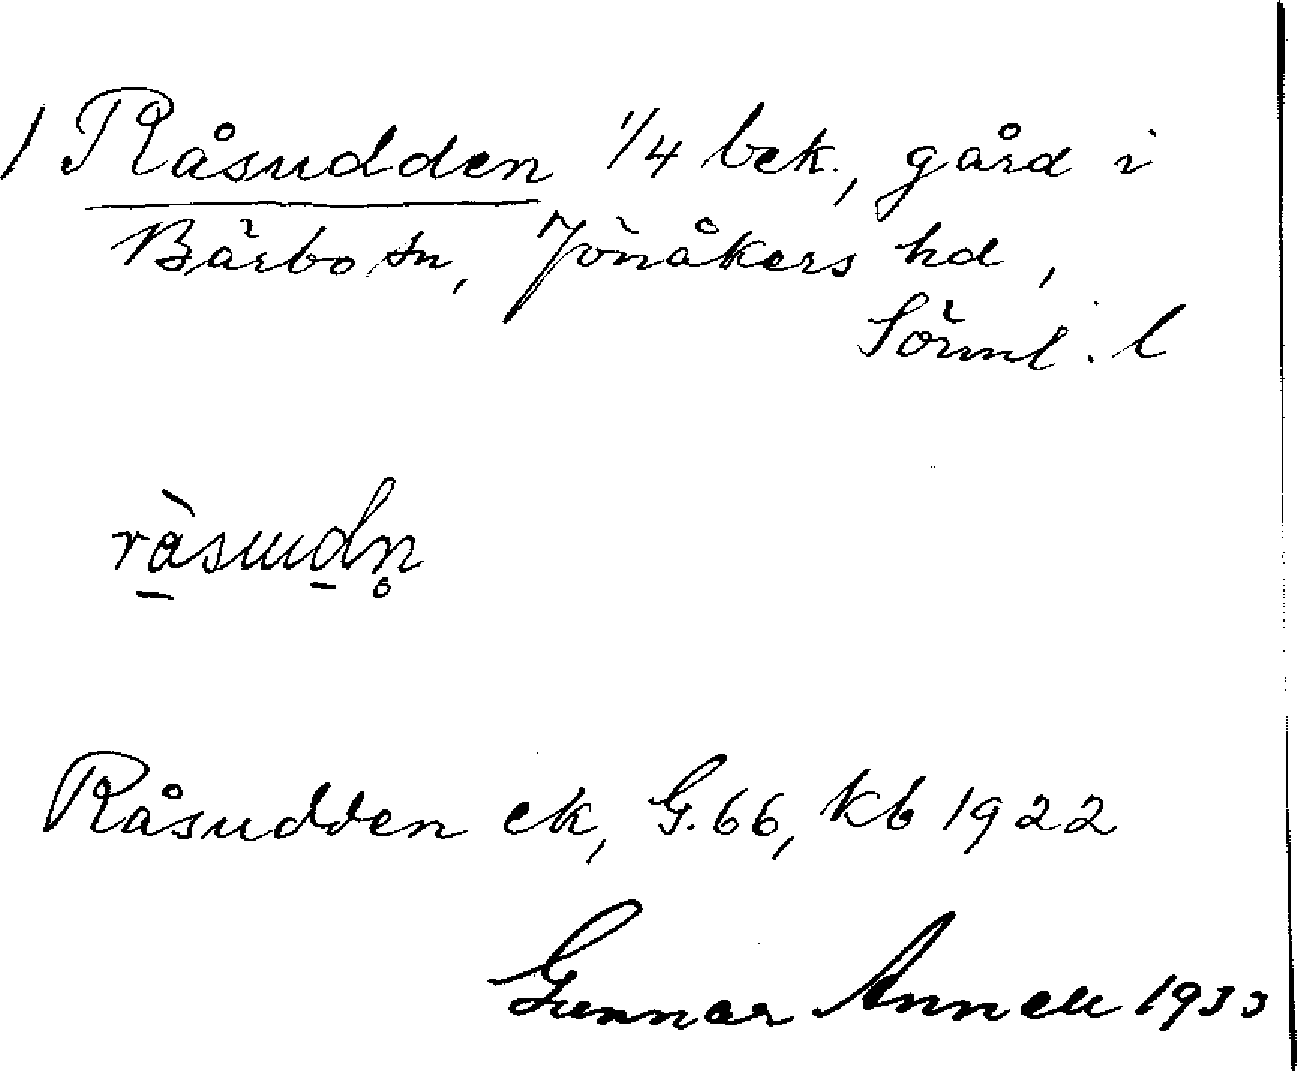 1 Råsudden 1/4 bek., gård i
Bärbo sn, Jönåkers hd,
Sörml. l
Råsudden ek, G. 66, kb 1922
Gunnar Annell 1933